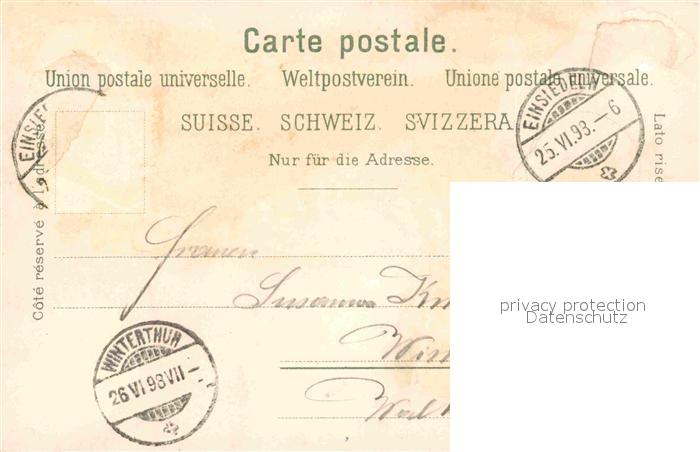 Carte postale.
Union postale universelle. Weltpostverein. Unione postale universale.
SUISSE. SCHWEIZ. SVIZZERA
Nur für die Adresse.
Côté réservé à l'adresse.
Lato rise
EINSIE
EINSIEDELN
25.VI.98.-6
privacy protection
Datenschutz
Susanna
WINTERTHUR
26 VI 98 VII-